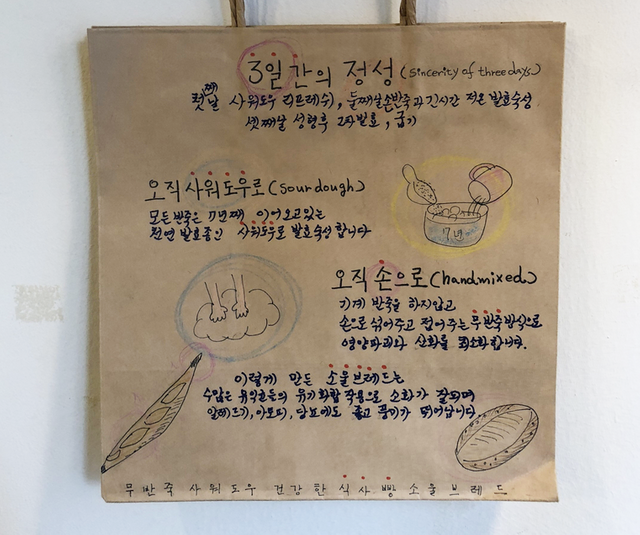 3일간의 정성 (sincerity of three days)
첫째날 사워도우 리프레쉬, 둘째날 손반죽과 긴시간 저온 발효숙성
셋째날 성형후 2차발효, 굽기
오직 사워도우로 (sour dough)
모든 반죽은 7년째 이어오고있는
천연 발효종인 사워도우로 발효숙성 합니다
7년
오직 손으로 (handmixed)
기계 반죽을 하지않고
손으로 섞어주고 접어주는 무반죽방식으로
영양파괴와 산화를 최소화합니다.
이렇게 만든 소울브레드는
수많은 유익균들의 유기화합 작용으로 소화가 잘되며
알레르기, 아토피, 당뇨에도 좋고 풍미가 뛰어납니다
무반죽 사워도우 건강한 식사빵 소울브레드